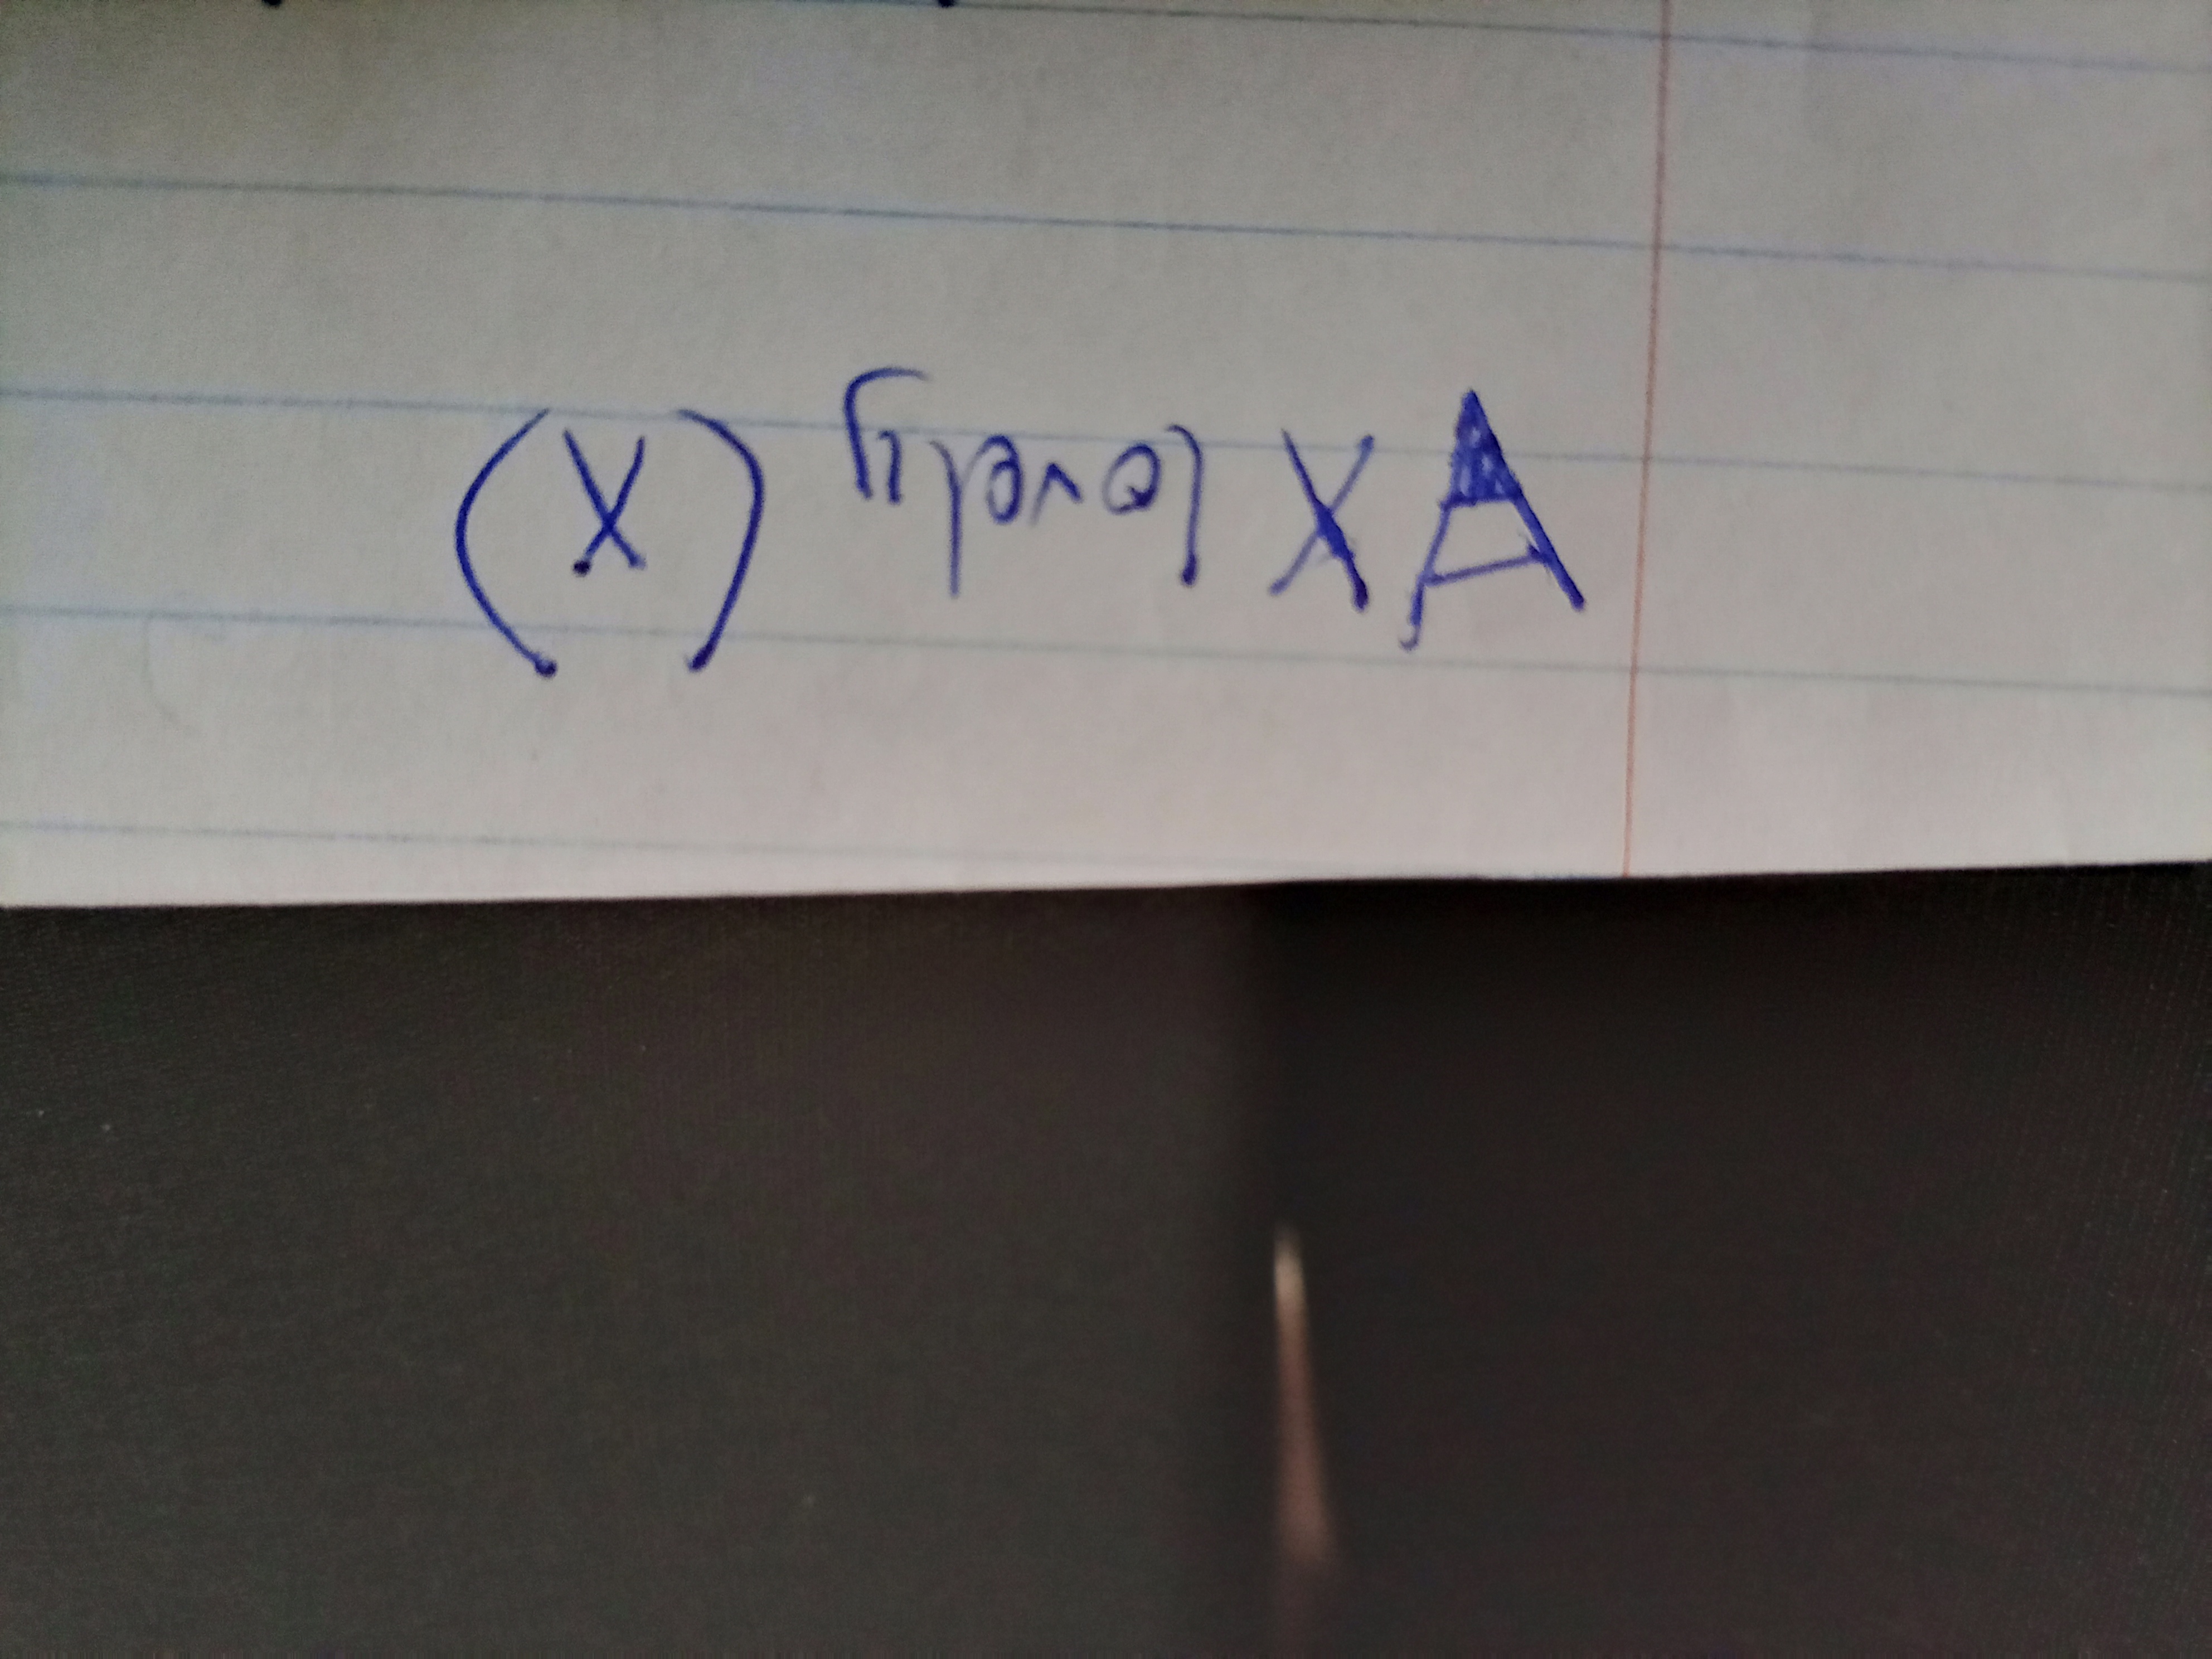 ∀x lovely (x)